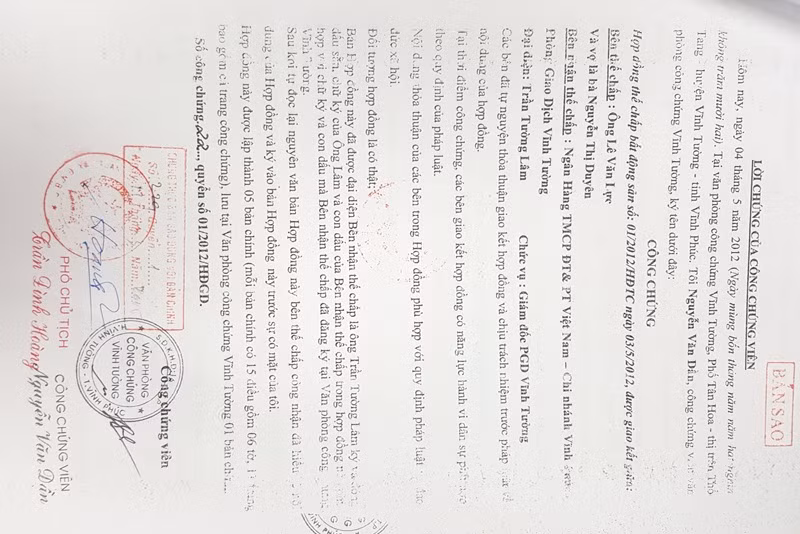 BẢN SAO
LỜI CHỨNG CỦA CÔNG CHỨNG VIÊN
Hôm nay, ngày 04 tháng 5 năm 2012 (Ngày mùng bốn tháng năm năm hai ngàn
không trăm mười hai). Tại văn phòng công chứng Vĩnh Tường, Phố Tân Hoa - thị trấn Thổ
Tang - huyện Vĩnh Tường - tỉnh Vĩnh Phúc. Tôi Nguyễn Văn Dần, công chứng viên văn
phòng công chứng Vĩnh Tường, ký tên dưới đây:
CÔNG CHỨNG
Hợp đồng thế chấp bất động sản số: 01/2012/HĐTC ngày 03/5/2012, được giao kết giữa:
Bên thế chấp : Ông Lê Văn Lực
Và vợ là bà Nguyễn Thị Duyên
Bên nhận thế chấp : Ngân Hàng TMCP ĐT& PT Việt Nam – Chi nhánh Vĩnh
Phòng Giao Dịch Vĩnh Tường
Đại diện: Trần Tường Lâm Chức vụ : Giám đốc PGD Vĩnh Tường
Các bên đã tự nguyện thỏa thuận giao kết hợp đồng và chịu trách nhiệm trước pháp luật về
nội dung của hợp đồng.
Tại thời điểm công chứng, các bên giao kết hợp đồng có năng lực hành vi dân sự phù hợp
theo quy định của pháp luật.
Nội dung thỏa thuận của các bên trong Hợp đồng phù hợp với quy định pháp luật,
đức xã hội.
Đối tượng hợp đồng là có thật;
Bản Hợp đồng này đã được đại diện Bên nhận thế chấp là ông Trần Tường Lâm ký và đóng
dấu sẵn, chữ ký của Ông Lâm và con dấu của Bên nhận thế chấp trong hợp đồng
hợp với chữ ký và con dấu mà Bên nhận thế chấp đã đăng ký tại Văn phòng công chứng
Vĩnh Tường.
Sau khi tự đọc lại nguyên văn bản Hợp đồng này bên thế chấp công nhận đã hiểu rõ nội
dung của Hợp đồng và ký vào bản Hợp đồng này trước sự có mặt của tôi.
Hợp đồng này được lập thành 05 bản chính (mỗi bản chính có 15 điều gồm 06 tờ, trang
bao gồm cả trang công chứng), lưu tại Văn phòng công chứng Vĩnh Tường 01 bản chính.
Số công chứng.22..., quyển số 01/2012/HĐGD.
Công chứng viên
CHỨNG THỰC BẢN SAO ĐÚNG VỚI BẢN CHÍNH
VĂN PHÒNG
CÔNG CHỨNG
VĨNH TƯỜNG
PHÓ CHỦ TỊCH
Trần Đình Hoàng
CÔNG CHỨNG VIÊN
Nguyễn Văn Dần